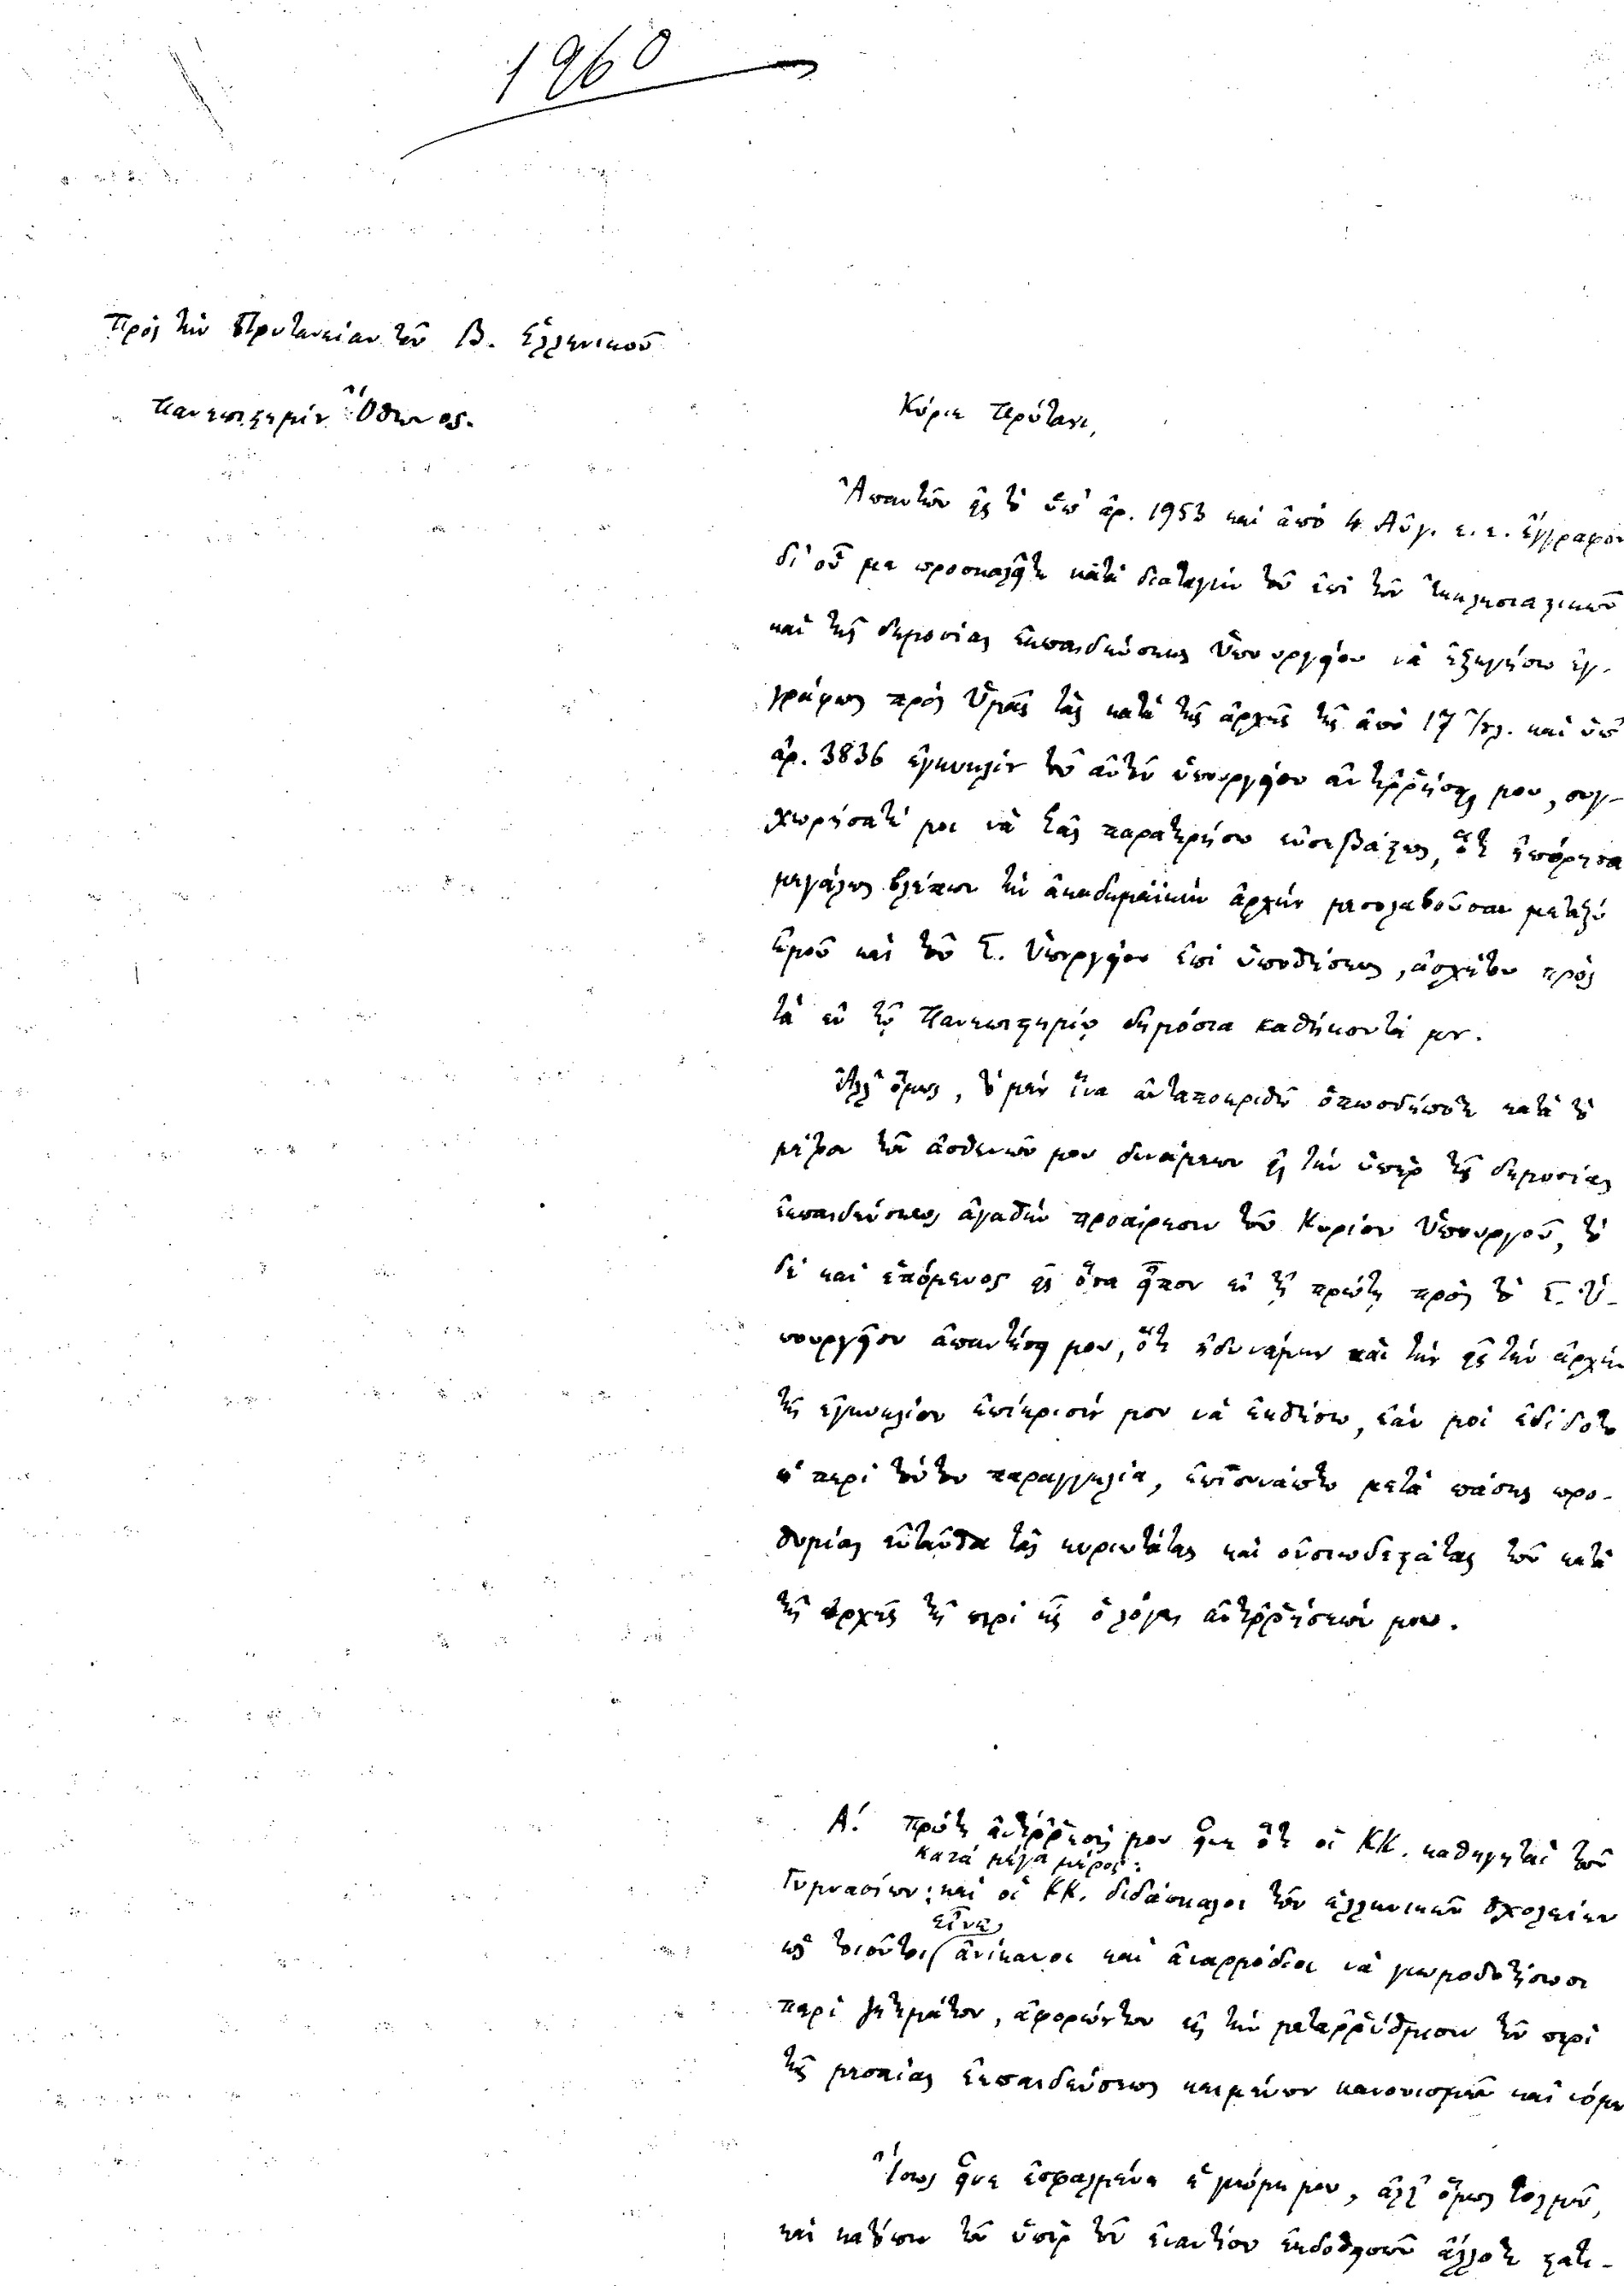 1960
Πρὸς τὴν Πρυτανείαν τοῦ Β. Ἑλληνικοῦ
Πανεπιστημίου Ὄθωνος.
Κύριε Πρύτανι,
Ἀπαντῶν εἰς τὸ ὑπ' ἀρ. 1953 καὶ ἀπὸ 4 Αὐγ. ἐ. ἔ. ἔγγραφον
δι' οὗ με προσκαλεῖτε κατὰ διαταγὴν τοῦ ἐπὶ τῶν Ἐκκλησιαστικῶν
καὶ τῆς δημοσίας ἐκπαιδεύσεως Ὑπουργείου νὰ ἐξηγήσω ἐγ-
γράφως πρὸς Ὑμᾶς τὰς κατὰ τῆς ἀρχῆς τῆς ἀπὸ 17 Ἰουλ. καὶ ὑπ'
ἀρ. 3836 ἐγκυκλίου τοῦ αὐτοῦ ὑπουργείου ἀντιῤῥήσεις μου, συγ-
χωρήσατέ μοι νὰ Σᾶς παρατηρήσω εὐσεβάστως, ὅτι ἠπόρησα
μεγάλως βλέπων τὴν ἀκαδημαϊκὴν ἀρχὴν μεσολαβοῦσαν μεταξὺ
ἐμοῦ καὶ τοῦ Σ. Ὑπουργείου ἐπὶ ὑποθέσεως, ἀσχέτου πρὸς
τὰ ἐν τῷ Πανεπιστημίῳ δημόσια καθήκοντά μου.
Ἀλλ' ὅμως, τὸ μὲν ἵνα ἀνταποκριθῶ ὁπωσδήποτε κατὰ τὸ
μέτρον τῶν ἀσθενῶν μου δυνάμεων εἰς τὴν ὑπὲρ τῆς δημοσίας
ἐκπαιδεύσεως ἀγαθὴν προαίρεσιν τοῦ Κυρίου Ὑπουργοῦ, τὸ
δὲ καὶ ἑπόμενος εἰς ὅσα εἶπον ἐν τῇ πρώτῃ πρὸς τὸ Σ. Ὑ-
πουργεῖον ἀπαντήσει μου, ὅτι ἠδυνάμην καὶ τὴν εἰς τὴν ἀρχὴν
τῆς ἐγκυκλίου ἐπίκρισίν μου νὰ ἐκθέσω, ἐάν μοι ἐδίδοτο
ἡ περὶ τούτου παραγγελία, ἐπισυνάπτω μετὰ πάσης προ-
θυμίας ἐνταῦθα τὰς κυριωτάτας καὶ οὐσιωδεστάτας τῶν κατὰ
τῆς ἀρχῆς τῆς περὶ ἧς ὁ λόγος ἀντιῤῥήσεών μου.
Α'. Πρώτη ἀντίῤῥησίς μου εἶνε ὅτι οἱ ΚΚ. καθηγηταὶ τῶν
κατὰ μέγα μέρος:
Γυμνασίων: καὶ οἱ ΚΚ. διδάσκαλοι τῶν ἑλληνικῶν σχολείων
εἶνε
ὡς τοιοῦτοι ἀνίκανοι καὶ ἀναρμόδιοι νὰ γνωμοδοτήσωσι
περὶ ζητημάτων, ἀφορώντων εἰς τὴν μεταῤῥύθμισιν τῶν περὶ
τῆς μεσαίας ἐκπαιδεύσεως κειμένων κανονισμῶν καὶ νόμων
Ἴσως εἶνε ἐσφαλμένη ἡ γνώμη μου, ἀλλ' ὅμως τολμῶ,
καὶ κατόπιν τῶν ὑπὲρ τοῦ ἐναντίου ἐκδοθεισῶν ἄλλοτε